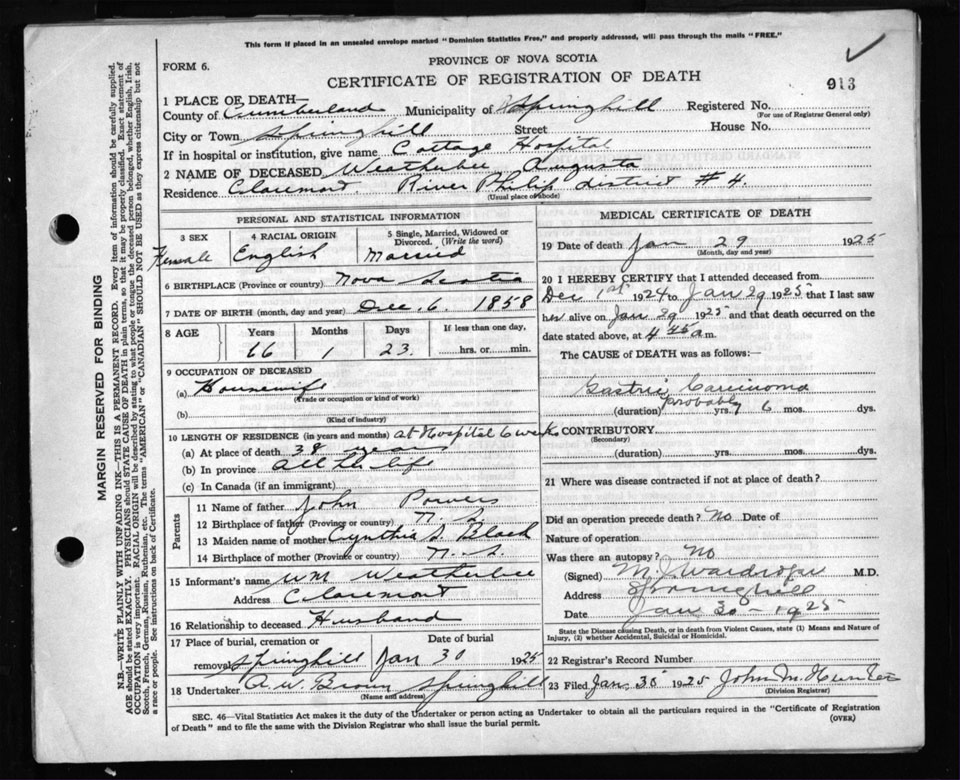 This form if placed in an unsealed envelope marked "Dominion Statistics Free," and properly addressed, will pass through the mails "FREE."
FORM 6.
PROVINCE OF NOVA SCOTIA
CERTIFICATE OF REGISTRATION OF DEATH
913
1 PLACE OF DEATH—
County of Cumberland Municipality of Springhill Registered No.
(For use of Registrar General only)
City or Town Springhill Street House No.
If in hospital or institution, give name Cottage Hospital
2 NAME OF DECEASED Weatherbee Augusta
Residence Claremont River Philip district #4.
(Usual place of abode)
PERSONAL AND STATISTICAL INFORMATION
3 SEX 4 RACIAL ORIGIN 5 Single, Married, Widowed or Divorced. (Write the word)
Female English Married
6 BIRTHPLACE (Province or country) Nova Scotia
7 DATE OF BIRTH (month, day and year) Dec. 6. 1858
8 AGE Years Months Days If less than one day,
66 1 23. hrs. or min.
9 OCCUPATION OF DECEASED
(a) Housewife
(Trade or occupation or kind of work)
(b)
(Kind of industry)
10 LENGTH OF RESIDENCE (in years and months) at Hospital 6 weeks
(a) At place of death 38 years
(b) In province all the life
(c) In Canada (if an immigrant)
Parents
11 Name of father John Powers
12 Birthplace of father (Province or country) N. S.
13 Maiden name of mother Cynthia S. Black
14 Birthplace of mother (Province or country) N. S.
15 Informant's name Wm Weatherbee
Address Claremont
16 Relationship to deceased Husband
17 Place of burial, cremation or Date of burial
removal Springhill Jan 30 1925
18 Undertaker A. W. Brown Springhill
(Name and address)
MEDICAL CERTIFICATE OF DEATH
19 Date of death Jan 29 1925
(Month, day and year)
20 I HEREBY CERTIFY that I attended deceased from
Dec 1st 1924 to Jan 29 1925 that I last saw
her alive on Jan 29 1925 and that death occurred on
date stated above, at 4 45 a m.
The CAUSE of DEATH was as follows:
Gastric Carcinoma
probably
(duration) yrs. 6 mos. dys.
CONTRIBUTORY
(Secondary)
(duration) yrs. mos. dys.
21 Where was disease contracted if not at place of death?
Did an operation precede death? No Date of
Nature of operation
Was there an autopsy? No
(Signed) M. J. Wardrope M.D.
Address Springhill
Date Jan 30 - 1925
State the Disease causing Death, or in death from Violent Causes, state (1) Means and Nature of
Injury, (2) whether Accidental, Suicidal or Homicidal.
22 Registrar's Record Number
23 Filed Jan. 30 1925 John M. Hunter
(Division Registrar)
SEC. 46—Vital Statistics Act makes it the duty of the Undertaker or person acting as Undertaker to obtain all the particulars required in the "Certificate of Registration
of Death" and to file the same with the Division Registrar who shall issue the burial permit.
(OVER)
MARGIN RESERVED FOR BINDING
N.B.—WRITE PLAINLY WITH UNFADING INK—THIS IS A PERMANENT RECORD. Every item of information should be carefully supplied.
AGE should be stated EXACTLY. PHYSICIANS should STATE CAUSE OF DEATH in plain terms, so that it may be properly classified. Exact statement of
OCCUPATION is very important. RACIAL ORIGIN will be described by stating to what people or tongue the deceased person belonged, whether English, Irish,
Scotch, French, German, Russian, Ruthenian, etc. The terms "AMERICAN" or "CANADIAN" SHOULD NOT BE USED as they express citizenship but not
a race or people. See instructions on back of Certificate.